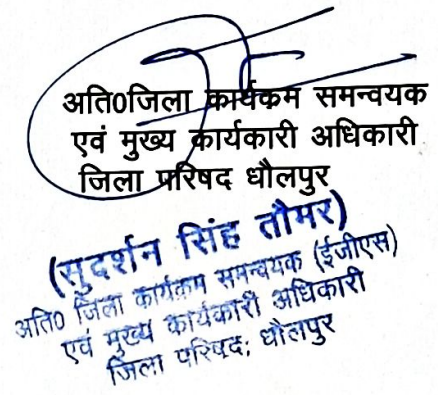 अति0जिला कार्यकम समन्वयक
एवं मुख्य कार्यकारी अधिकारी
जिला परिषद धौलपुर
(सुदर्शन सिंह तौमर)
अति0 जिला कार्यक्रम समन्वयक (ईजीएस)
एवं मुख्य कार्यकारी अधिकारी
जिला परिषद; धौलपुर